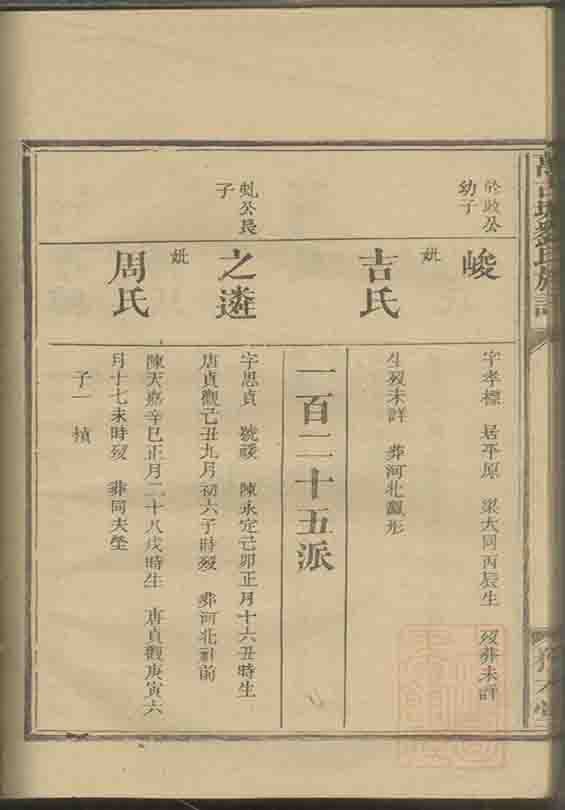 於政公
幼子
峻
字孝標　居平原　梁大同丙辰生　歿葬未詳
妣
吉氏
生歿未詳　葬河北
一百二十五派
虬公長
子
之遴
字思貞　號　陳永定己卯正月十六丑時生
唐貞觀己丑九月初六子時歿　葬河北　前
妣
周氏
陳天嘉辛巳正月二十八戌時生　唐貞觀庚寅六
月十七未時歿　葬同夫塋
子一
劉氏族譜